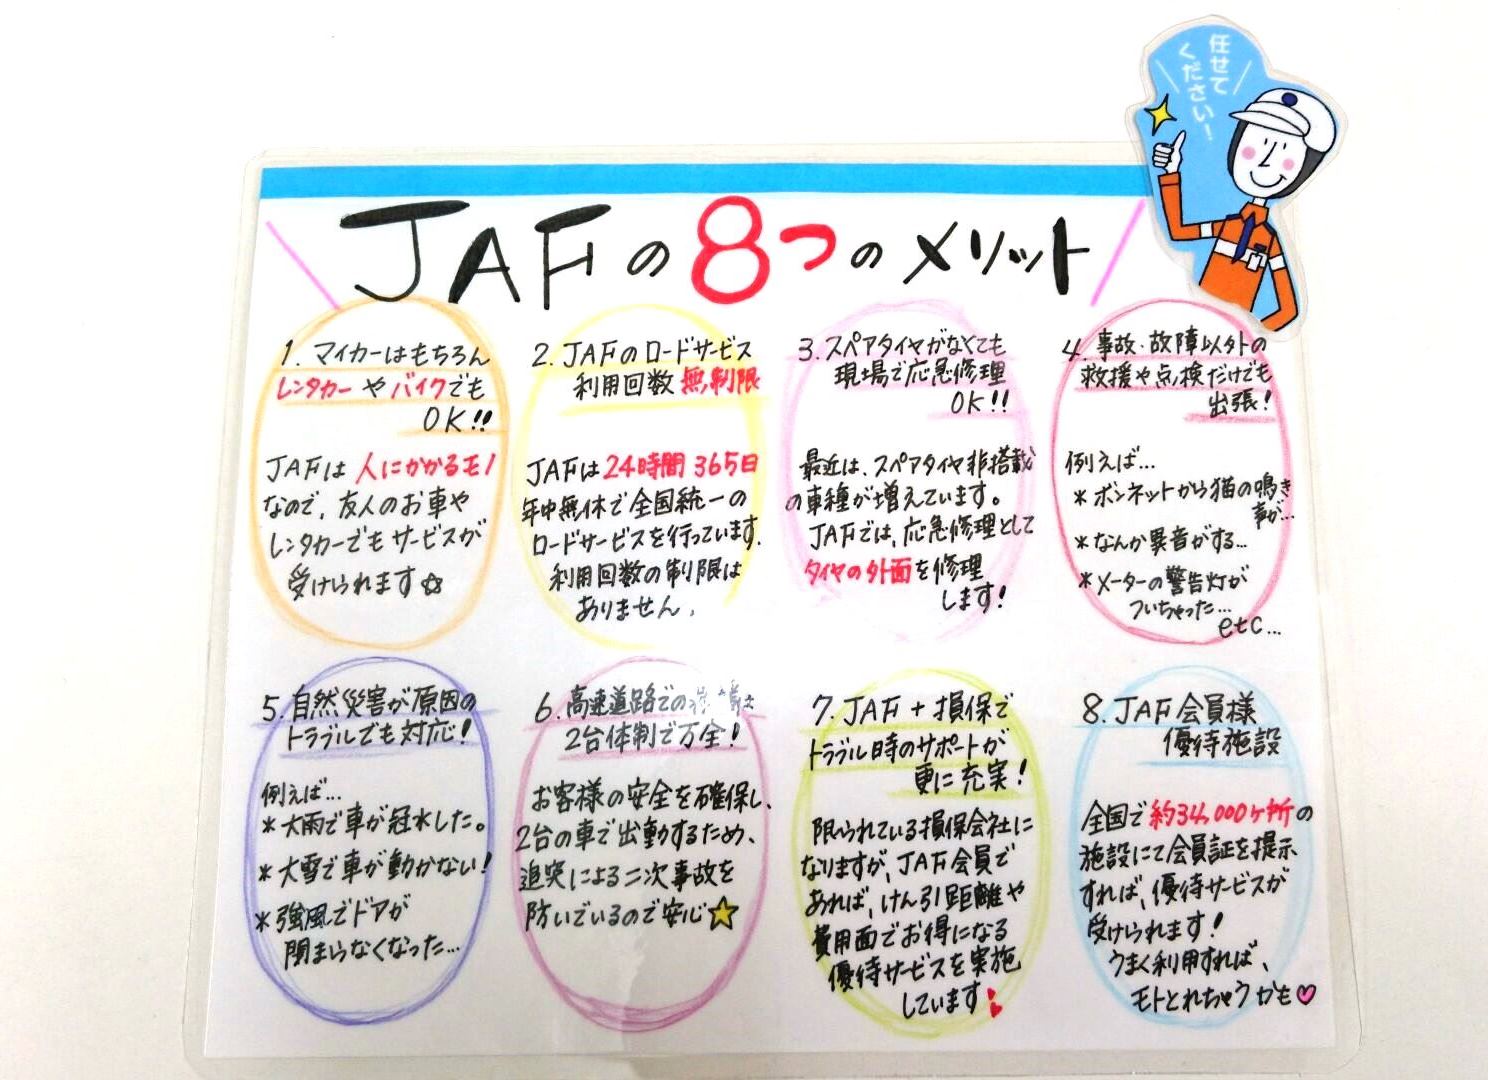 任せて
ください!
JAFの8つのメリット
1. マイカーはもちろん
レンタカーやバイクでも
OK!!
JAFは人にかかるモノ
なので、友人のお車や
レンタカーでもサービスが
受けられます☆
2. JAFのロードサービス
利用回数無制限
JAFは24時間365日
年中無休で全国統一の
ロードサービスを行っています.
利用回数の制限は
ありません.
3. スペアタイヤがなくても
現場で応急修理
OK!!
最近は、スペアタイヤ非搭載
の車種が増えています。
JAFでは、応急修理として
タイヤの外面を修理
します!
4. 事故・故障以外の
救援や点検だけでも
出張!
例えば...
*ボンネットから猫の鳴き
声が...
*なんか異音がする...
*メーターの警告灯が
ついちゃった...
etc...
5. 自然災害が原因の
トラブルでも対応!
例えば...
*大雨で車が冠水した。
*大雪で車が動かない!
*強風でドアが
閉まらなくなった...
6. 高速道路での
2台体制で万全!
お客様の安全を確保し、
2台の車で出動するため、
追突による二次事故を
防いでいるので安心☆
7. JAF+損保で
トラブル時のサポートが
更に充実!
限られている損保会社に
なりますが、JAF会員で
あれば、けん引距離や
費用面でお得になる
優待サービスを実施
しています
8. JAF会員様
優待施設
全国で約34,000ヶ所の
施設にて会員証を提示
すれば、優待サービスが
受けられます!
うまく利用すれば、
モトとれちゃうかも♡